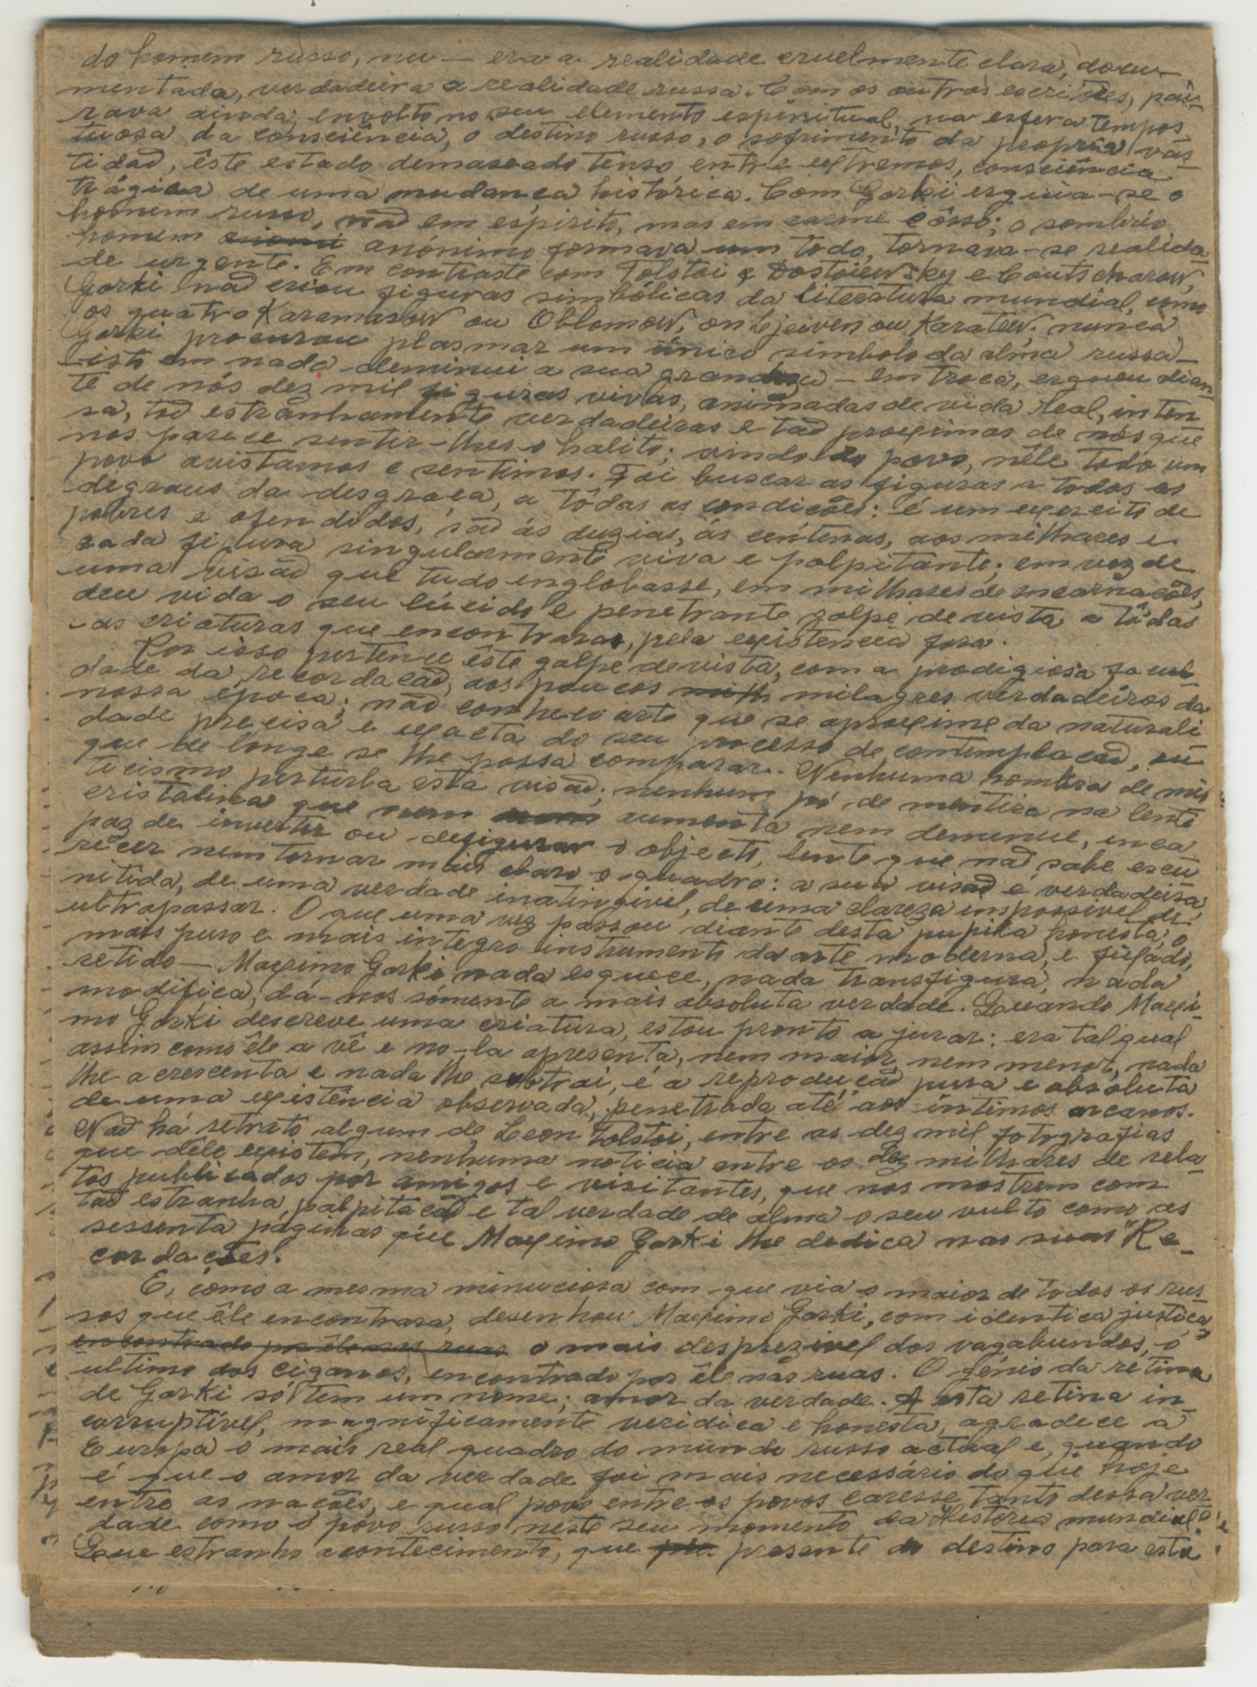 do homem russo, nu — era a realidade cruelmente clara, docu-
mentada, verdadeira a realidade russa. Com os outros escritores, pai-
rava ainda, envolto no seu elemento espiritual, na esfera tempes
tuosa da consciência, o destino russo, o sofrimento da propria vas-
tidaõ, êste estado demaseado tenso entre extremos, consciência
trágica de uma mudança histórica. Com Gorki erguia-se o
homem russo, naõ em espirito, mas em carne e ôsso; o sombrio
homem anonimo formava um todo, tornava-se realida-
de urgente. Em contraste com Tolstoi e Dostoiewsky e Contscharow,
Gorki naõ criou figuras simbólicas da literatura mundial, como
os quatro Karamasow ou Oblomow, ou Ljewen ou Karatew. nunca
Gorki procurou plasmar um único simbolo da alma russa —
isto em nada deminui a sua grandeza — em troca, ergueu dian-
te de nós dez mil figuras vivas, animadas de vida real, inten
sa, taõ estranhamente verdadeiras e taõ proximas de nós que
nos parece sentir-lhes o halito; vindo do povo, nêle todo um
povo avistamos e sentimos. Foi buscar as figuras a todos os
degraus da desgraça, a tôdas as condições: é um exercito de
pobres e ofendidos, saõ ás duzias, ás centenas, aos milhares e
cada figura singularmente viva e palpitante; em vez de
uma visaõ que tudo englobasse, em milhares de encarnações,
deu vida o seu lúcido e penetrante golpe de vista a tôdas
as criaturas que encontrara, pela existencia fora.
Por isso pertence êste golpe de vista, com a prodigiosa facul-
dade da recordaçaõ, aos poucos milagres verdadeiros da
nossa época; não conheço arte que se aproxime da naturali
dade precisa e exacta do seu processo de contemplaçaõ, ou
que de longe se lhe possa comparar. Nenhuma sombra de mis
ticismo perturba esta visaõ; nenhum pó de mentira na lente
cristalina que nem aumenta nem demenue, inca
paz de inverter ou desfigurar o objecto, lente que naõ sabe escu
recer nem tornar mais claro o quadro: a sua visaõ é verdadeira
nitida, de uma verdade inatingivel, de uma clareza impossivel de
ultrapassar. O que uma vez passou diante desta pupila honesta, o
mais puro e mais integro instrumento da arte moderna, é fixado,
retido — Maximo Gorki nada esquece, nada transfigura, nada
modifica, dá-nos sómente a mais absoluta verdade. Quando Maxi-
mo Gorki descreve uma criatura, estou pronto a jurar: era tal qual
assim como êle a vê e no-la apresenta, nem maior, nem menor, nada
lhe acrescenta e nada lhe subtrai, é a reproduçaõ pura e absoluta
de uma existência observada, penetrada até aos íntimos arcanos.
Naõ há retrato algum de Leon Tolstoi, entre as dez mil fotografias
que dêle existem, nenhuma noticia entre os dez milhares de rela-
tos publicados por amigos e visitantes, que nos mostrem com
taõ estranha palpitaçaõ e tal verdade de alma o seu vulto como as
sessenta páginas que Maximo Gorki lhe dedica nas suas "Re-
cordações.
E, como a mesma minuciosa com que via o maior de todos os rus-
sos que êle encontrara, desenhou Maximo Gorki, com identica justiça,
encontrado por êle nas ruas o mais desprezivel dos vagabundos, o
ultimo dos ciganos, encontrado por êle nas ruas. O génio da retina
de Gorki só tem um nome; amor da verdade. A esta retina in-
corruptível, magnificamente veridica e honesta, agradece a
Europa o mais real quadro do mundo russo actual e, quando
é que o amor da verdade foi mais necessário do que hoje
entre as nações, e qual povo entre os povos caresse tanto dessa ver
dade como o povo russo neste seu momento da História mundial?
Que estranho acontecimento, que presente do destino para esta